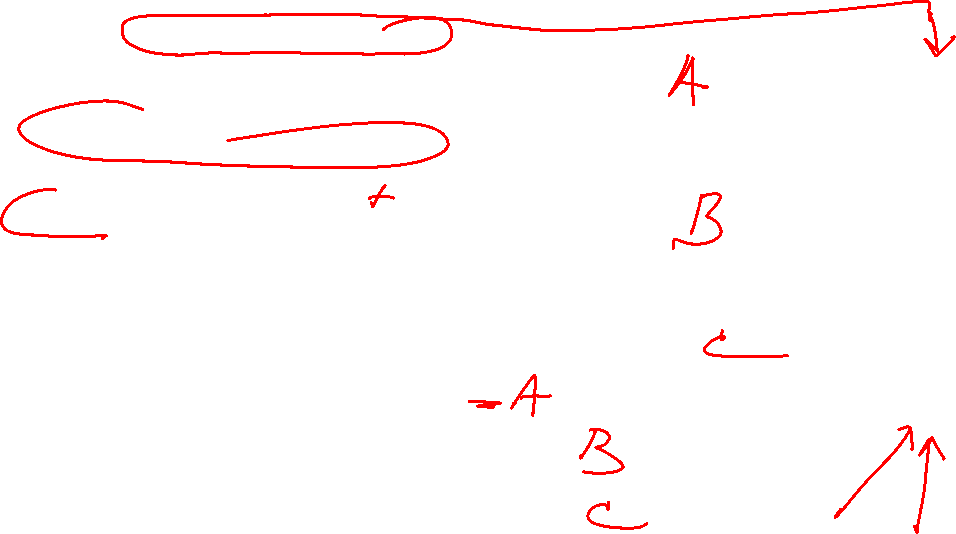 A
+
B
C
C
- A
B
C